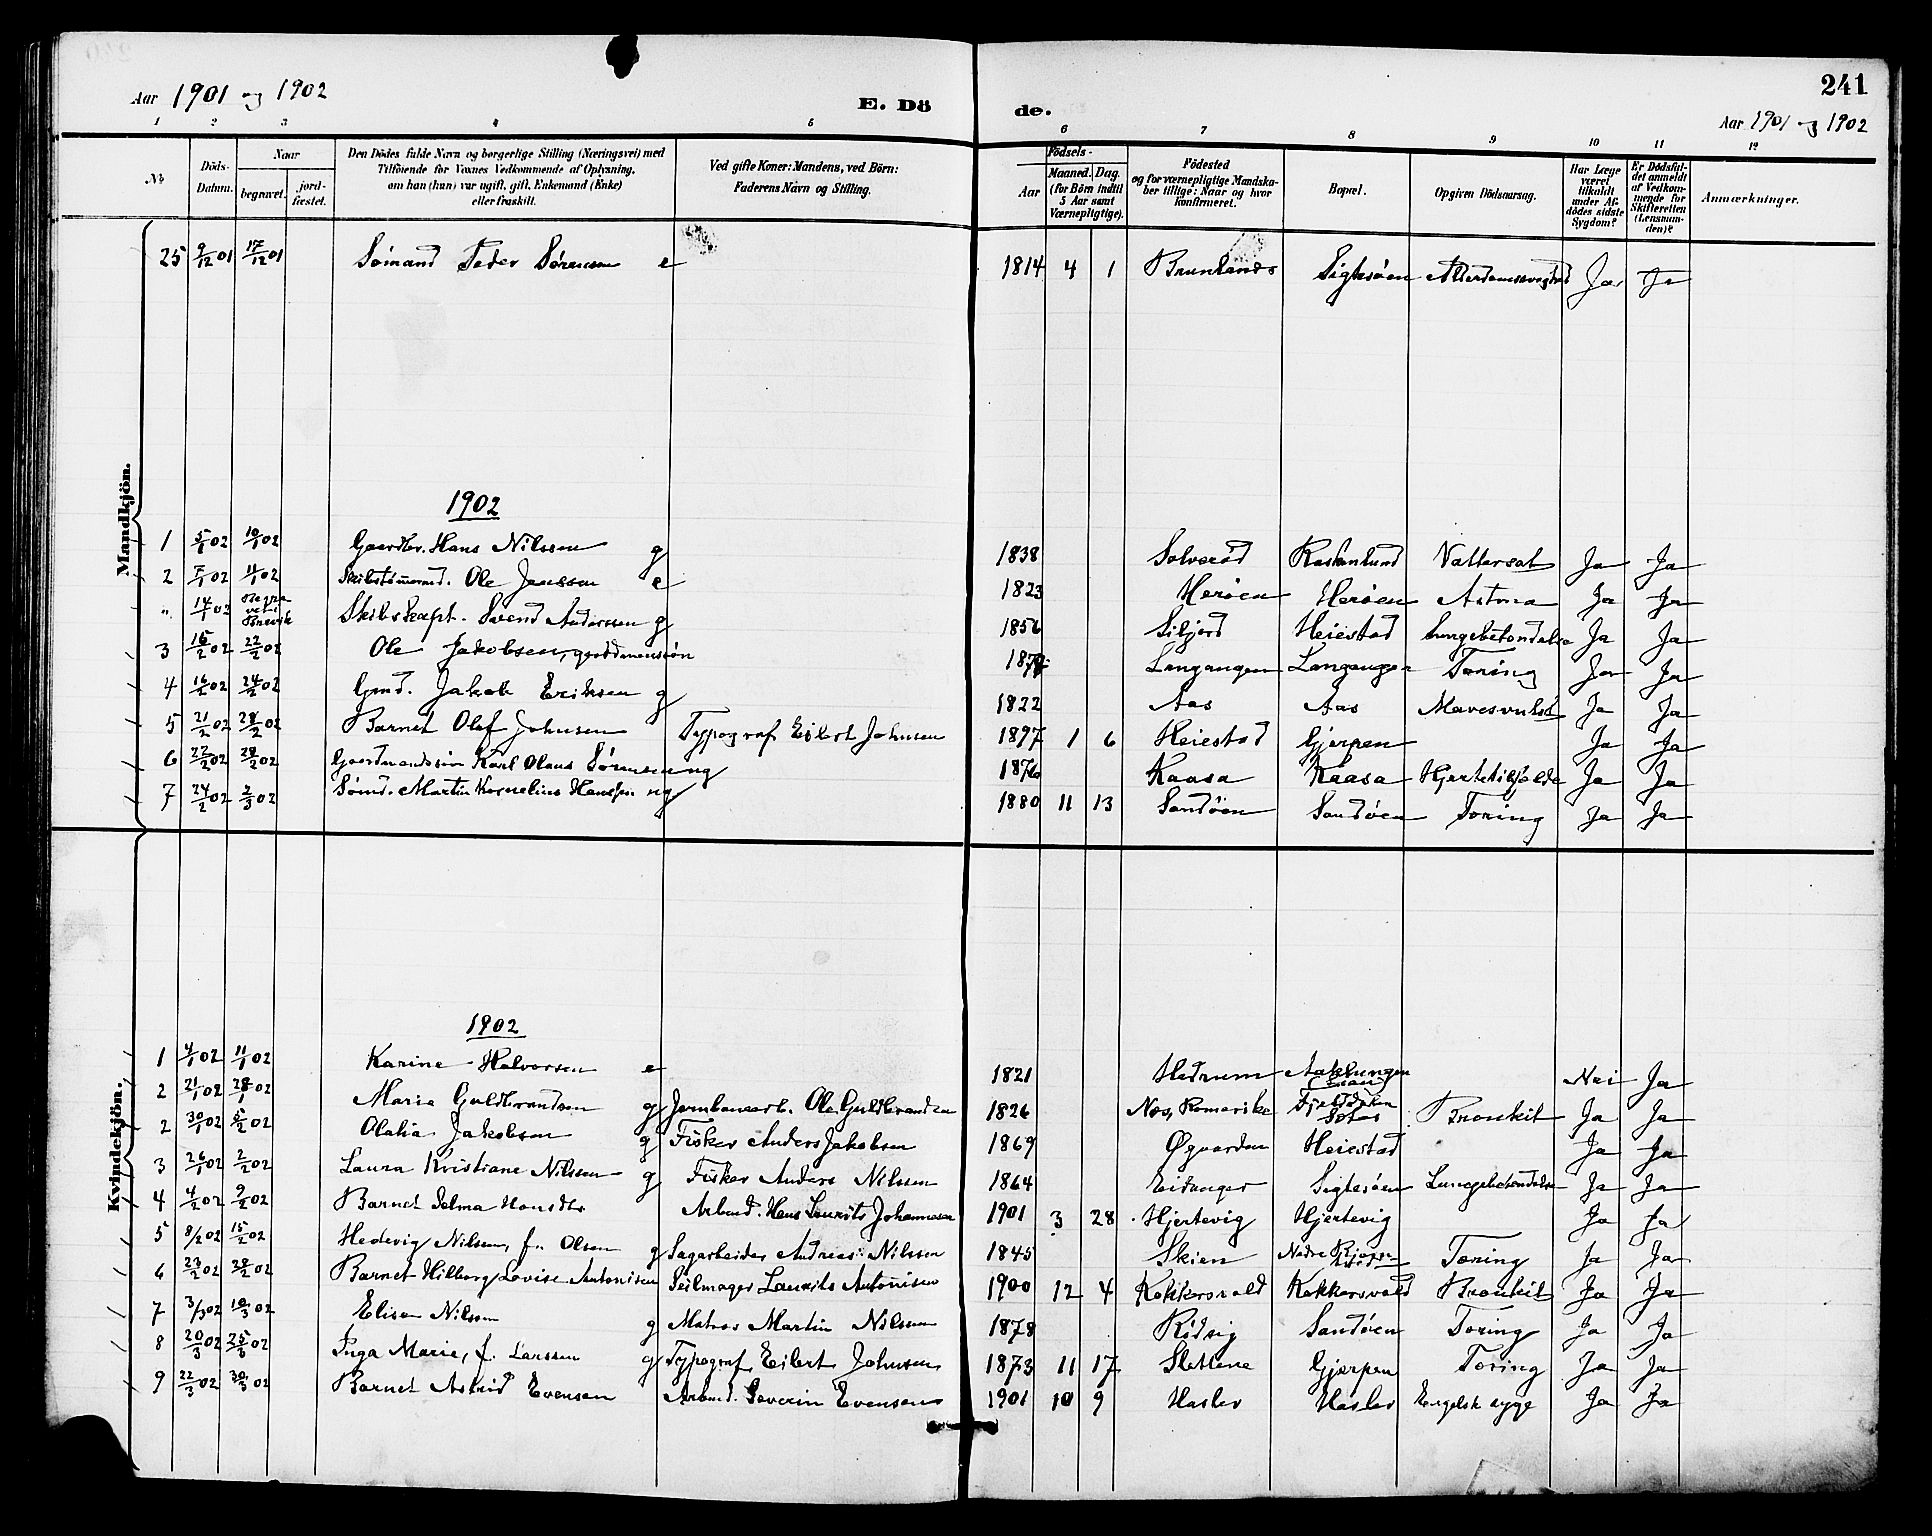 241
Aar 1901 og 1902
E. Dö
de.
Aar 1901 og 1902
1 2 3 4 5 6 7 8 9 10 11 12
No
Döds-Datum.
Naar
begravet.
jord-fæstet.
Den Dödes fulde Navn og borgerlige Stilling (Næringsvei) med
Tilföiende for Voxnes Vedkommende af Oplysning,
om han (hun) var ugift, gift, Enkemand (Enke)
eller fraskilt.
Ved gifte Koner: Mandens, ved Börn:
Faderens Navn og Stilling.
Födsels-
Aar
Maaned. Dag.
(for Börn indtil
5 Aar samt
Værnepligtige).
Födested
og for værnepligtige Mandska-
ber tillige: Naar og hvor
konfirmeret.
Bopæl.
Opgiven Dödsaarsag.
Har Læge
været
tilkaldt
under Af-
dödes sidste
Sygdom?
Er Dödsfal-
det anmeldt
af Vedkom-
mende for
Skifteretten
(Lensman-
den)?
Anmærkninger.
Mandkjön.
25 9/12 01 17/12 01 Sömand Peder Sörensen e 1814 4 1 Brunlanes Sigtesöen Alderdomssvaghed Ja Ja
1902
1 5/1 02 10/1 02 Gaardbr. Hans Nilssen g 1838 Solverød Vattersot Ja Ja
2 02 11/1 02 Skibstømmermd. Ole Janssen e 1823 Herøen Herøen Astma Ja Ja
" 14/1 02 Begra vet i Brevik Skibskapt. Svend Anderssen g 1856 Siljord Heiestad Lungebetændelse Ja Ja
3 15/2 02 22/2 02 Ole Jakobsen, gaardmanssön Langangen Langangen Tæring Ja Ja
4 16/2 02 24/2 02 Gmd. Jakob Eriksen g 1822 Aas Aas Mavesvulst Ja Ja
5 21/2 02 28/2 02 Barnet Olaf Johnsen Typograf Eilert Johnsen 1897 1 6 Heiestad Gjerpen Ja Ja
6 22/2 02 28/2 02 Gaardmandssön Karl Olaus Sörensen ug 1876 Kaasa Kaasa Hjertetilfælde Ja Ja
7 24/2 02 2/3 02 Sömd. Martin Kornelius Hanssen ug 1880 11 13 Sandöen Sandöen Tæring Ja Ja
Kvindekjön.
1902
1 4/1 02 11/1 02 Karine Halvorsen e 1821 Hedrum Aaklungen Nei Ja
2 21/1 02 28/1 02 Maria Guldbrandsen g Jernbanearb. Ole Guldbrandsen 1826 Nes, Romerike Bronkit Ja Ja
2 30/1 02 5/2 02 Olalia Jakobsen g Fisker Anders Jakobsen 1869 Øgaarden Heiestad Ja Ja
3 26/1 02 2/2 02 Laura Kristiane Nilssen g Fisker Anders Nilssen 1864 Eidanger Sigtesöen Lungebetændelse Ja Ja
4 4/2 02 9/2 02 Barnet Selma Hansdtr Arbmd. Hans Laurits Johannesen 1901 3 28 Hjertevig Hjertevig Ja Ja
5 8/2 02 15/2 02 Hedevig Nilssen, f. Olsen g Sagarbeider Andreas Nilssen 1845 Skien Nedre Tæring Ja Ja
6 23/2 02 28/2 02 Barnet Hilborg Lovise Antonisen Seilmager Laurits Antonisen 1900 12 4 Kokkersvold Kokkersvold Bronkit Ja Ja
7 3/3 02 10/3 02 Elise Nilssen g Matros Martin Nilssen 1878 Rødsig Sandöen Tæring Ja Ja
8 20/3 02 25/3 02 Inga Marie, f. Larssen g Typograf Eilert Johnsen 1873 11 17 Slettene Gjerpen Tæring Ja Ja
9 22/3 02 30/3 02 Barnet Astrid Evensen Arbmd. Severin Evensen 1901 10 9 Hasler Hasler Engelsk syge Ja Ja